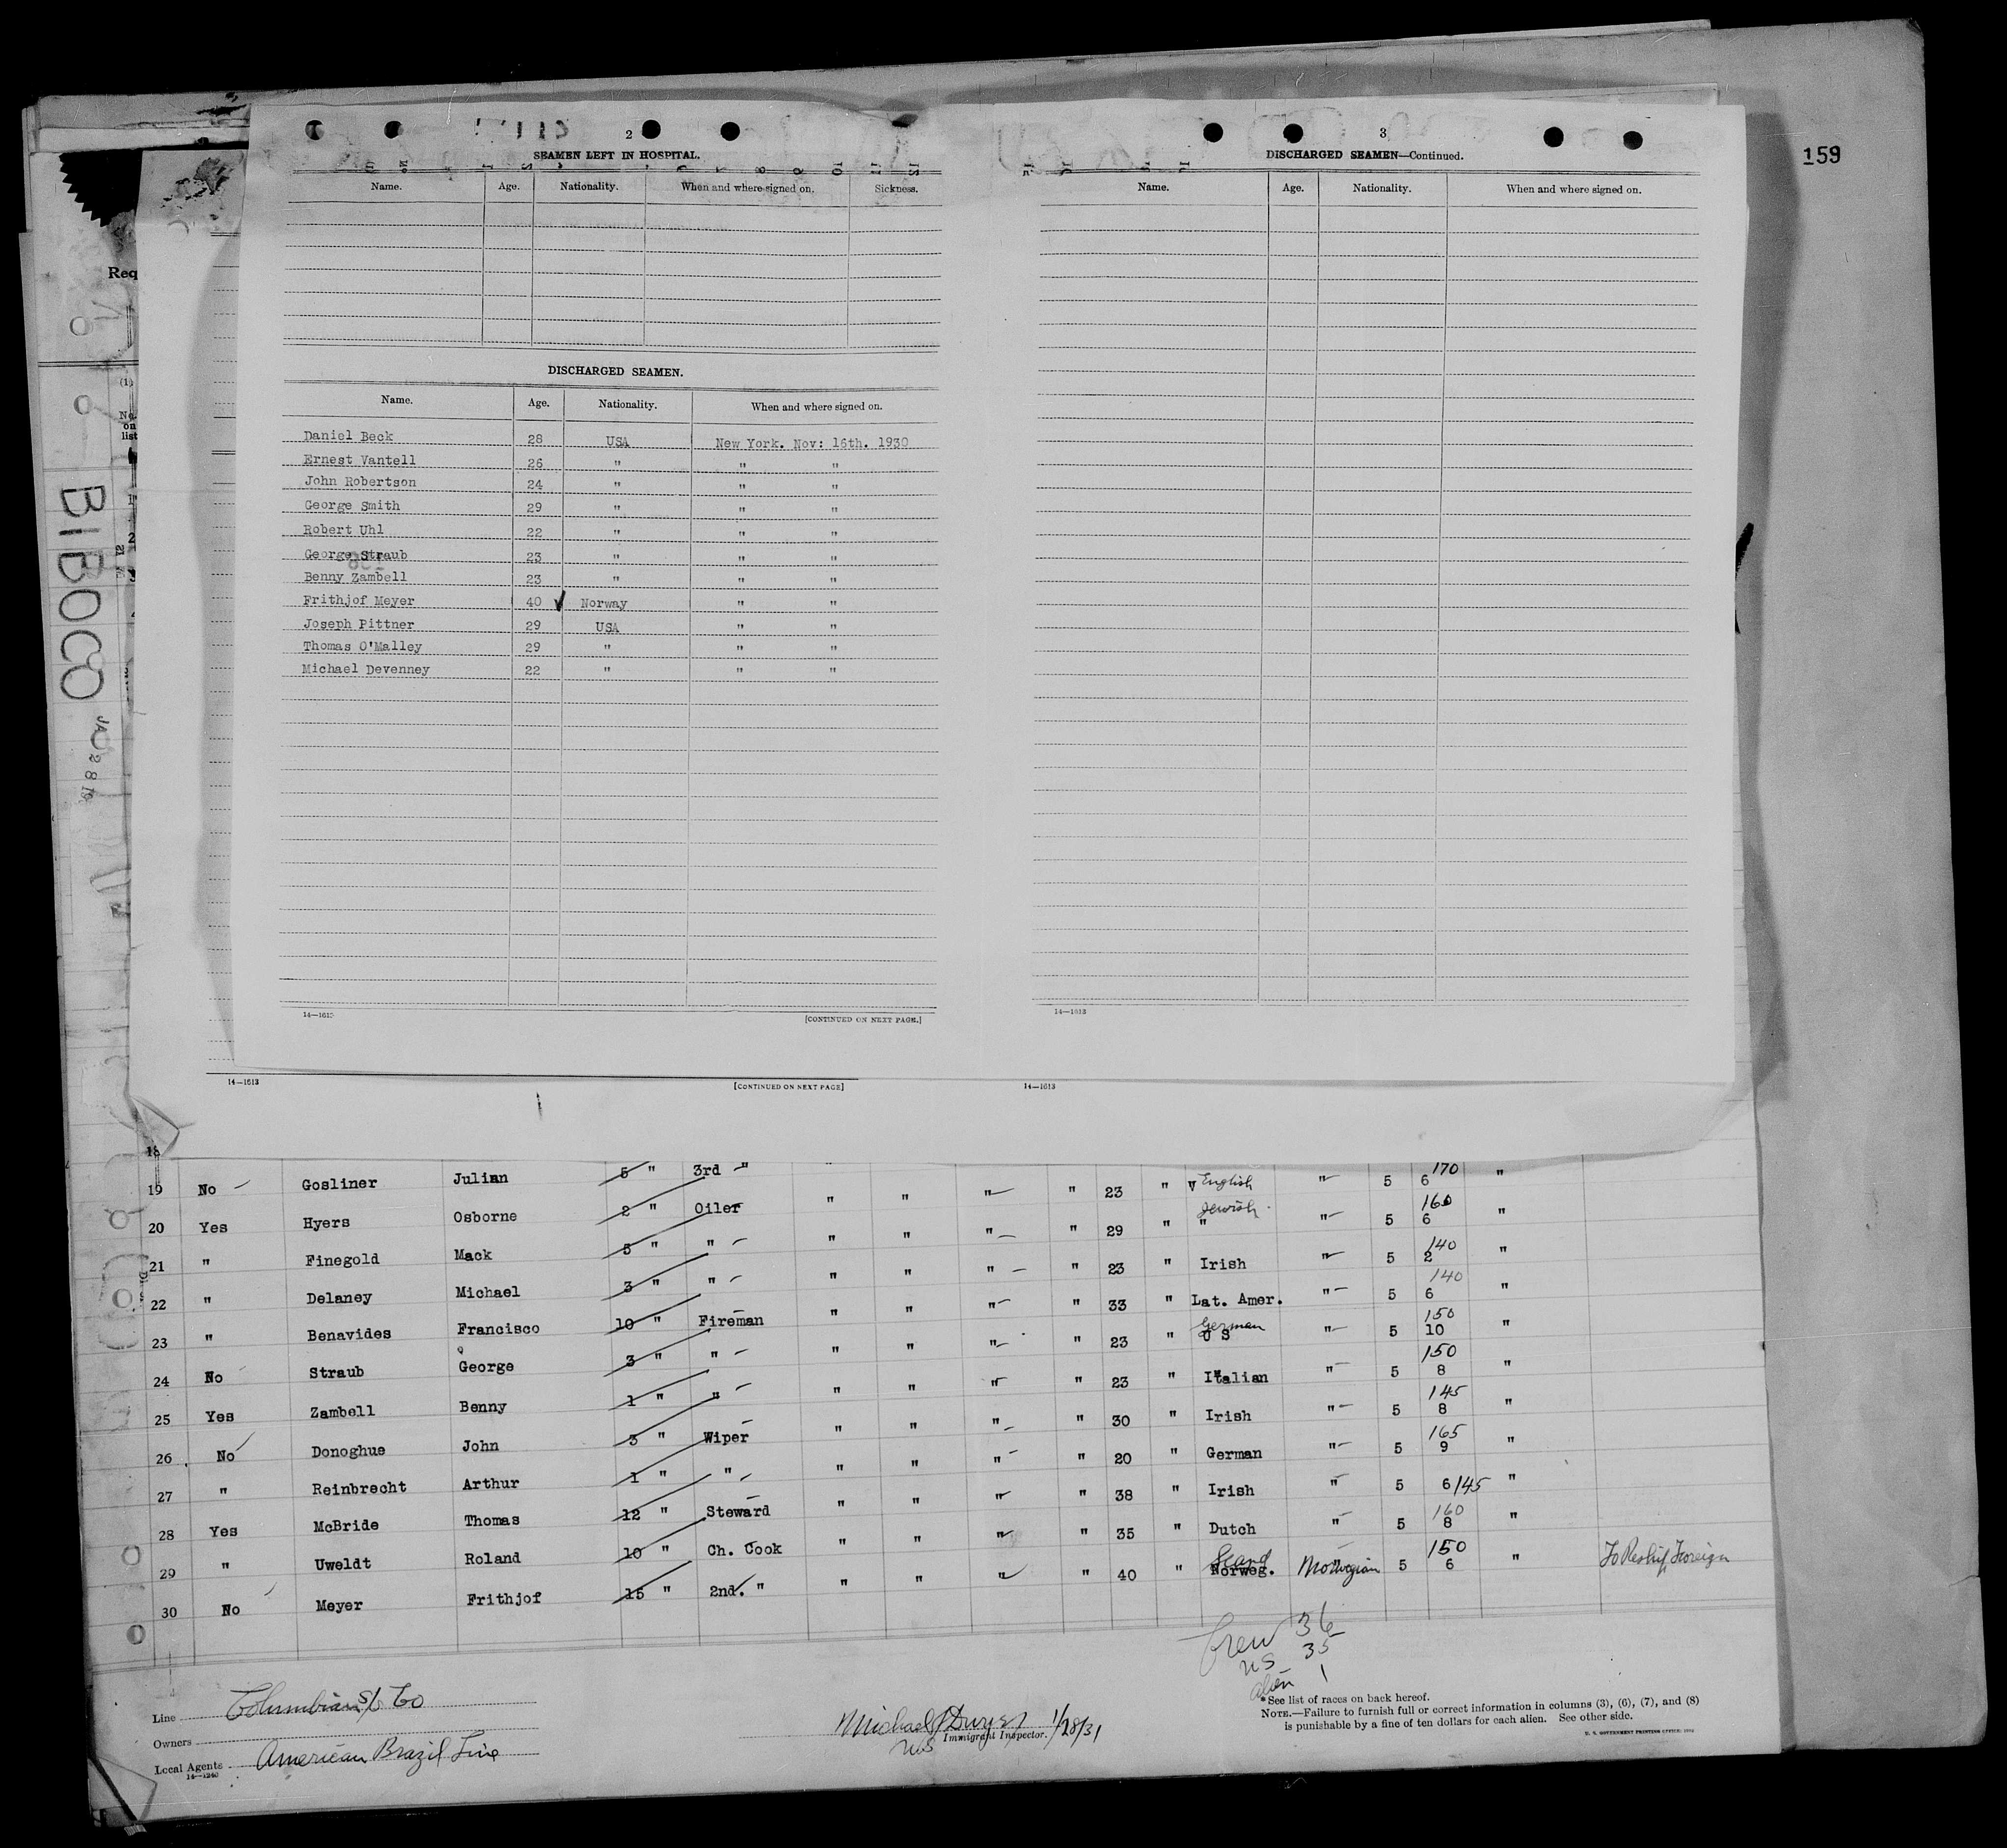 159
2
SEAMEN LEFT IN HOSPITAL.
Name. Age. Nationality. When and where signed on. Sickness.
DISCHARGED SEAMEN.
Name. Age. Nationality. When and where signed on.
Daniel Beck 28 USA New York. Nov: 16th. 1930
Ernest Vantell 26 " " "
John Robertson 24 " " "
George Smith 29 " " "
Robert Uhl 22 " " "
George Straub 23 " " "
Benny Zambell 23 " " "
Frithjof Meyer 40 ✓ Norway " "
Joseph Pittner 29 USA " "
Thomas O'Malley 29 " " "
Michael Devenney 22 " " "
14—1613 [CONTINUED ON NEXT PAGE.]
3
DISCHARGED SEAMEN—Continued.
Name. Age. Nationality. When and where signed on.
14—1613
14—1613 [CONTINUED ON NEXT PAGE] 14—1613
Req
(1)
No. on list
BIBOCO
18
19 No Gosliner Julian 5 " 3rd " " " " " 23 " English " 5 6 170 "
20 Yes Hyers Osborne 2 " Oiler " " " " 29 " Jewish " " 5 6 160 "
21 " Finegold Mack 5 " " " " " " 23 " Irish " 5 2 140 "
22 " Delaney Michael 3 " " " " " " 33 " Lat. Amer. " 5 6 140 "
23 " Benavides Francisco 10 " Fireman " " " " 23 " German U S " 5 10 150 "
24 No Straub George 3 " " " " " " 23 " Italian " 5 8 150 "
25 Yes Zambell Benny 1 " " " " " " 30 " Irish " 5 8 145 "
26 No Donoghue John 3 " Wiper " " " " 20 " German " 5 9 165 "
27 " Reinbrecht Arthur 1 " " " " " " 38 " Irish " 5 6 145 "
28 Yes McBride Thomas 12 " Steward " " " " 35 " Dutch " 5 8 160 "
29 " Uweldt Roland 10 " Ch. Cook " " " " 40 " Scand Norweg. Norwegian 5 6 150 " To Reship Foreign
30 No Meyer Frithjof 15 " 2nd. " " " "
Crew 36
US 35
alien 1
Line Columbian S/S Co
Owners
Local Agents American Brazil Line
14—1240
Michael Dwyer 1/28/31
Immigrant Inspector.
*See list of races on back hereof.
NOTE.—Failure to furnish full or correct information in columns (3), (6), (7), and (8)
is punishable by a fine of ten dollars for each alien. See other side.
U. S. GOVERNMENT PRINTING OFFICE